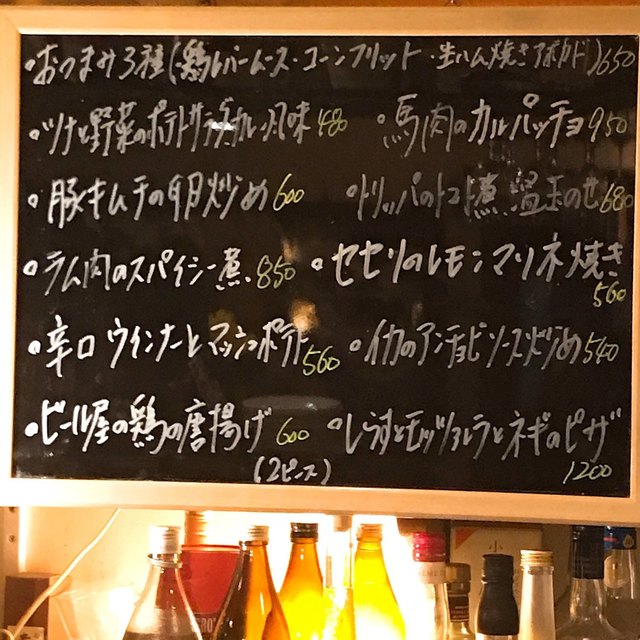 ・おつまみ3種(鶏レバームース・コーンフリット・生ハム焼きアボカド)650
・ツナと野菜のポテトサラダカレー風味 480
・馬肉のカルパッチョ 950
・豚キムチの卵炒め 600
・トリッパのトマト煮 温玉のせ 680
・ラム肉のスパイシー煮 850
・セセリのレモンマリネ焼き 560
・辛口ウインナーとマッシュポテト 560
・イカのアンチョビソース炒め 540
・ビール屋の鶏の唐揚げ 600
(2ピース)
・しらすとモッツァレラとネギのピザ
1200